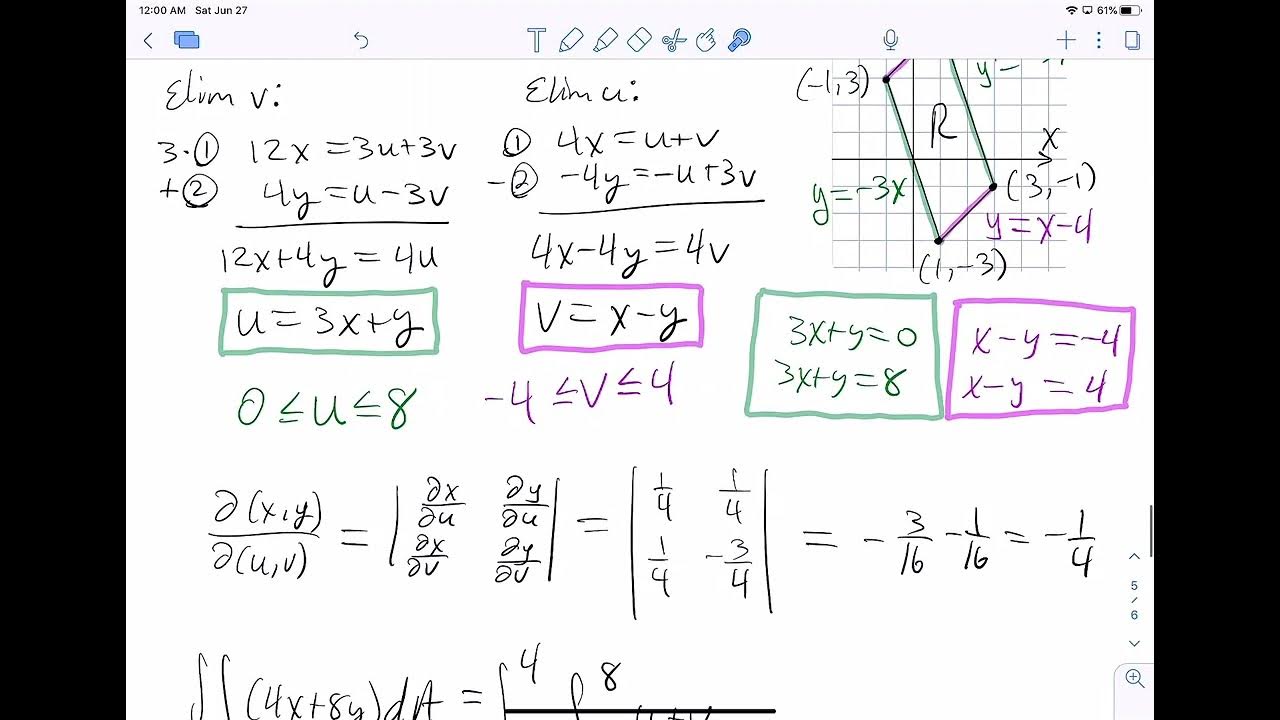 12:00 AM Sat Jun 27
61%
T
Elim v:
3·① 12x = 3u+3v
+② 4y = u-3v
12x+4y = 4u
u = 3x+y
0 ≤ u ≤ 8
Elim u:
① 4x = u+v
-② -4y = -u+3v
4x-4y = 4v
v = x-y
-4 ≤ v ≤ 4
(-1,3)
R
x
y=-3x
(3,-1)
y=x-4
(1,-3)
3x+y=0
3x+y=8
x-y=-4
x-y=4
∂(x,y)/∂(u,v) = |∂x/∂u ∂y/∂u; ∂x/∂v ∂y/∂v| = |1/4 1/4; 1/4 -3/4| = -3/16 - 1/16 = -1/4
5
/
6
∬(4x+8y)dA = ∫ 4 ∫ 8